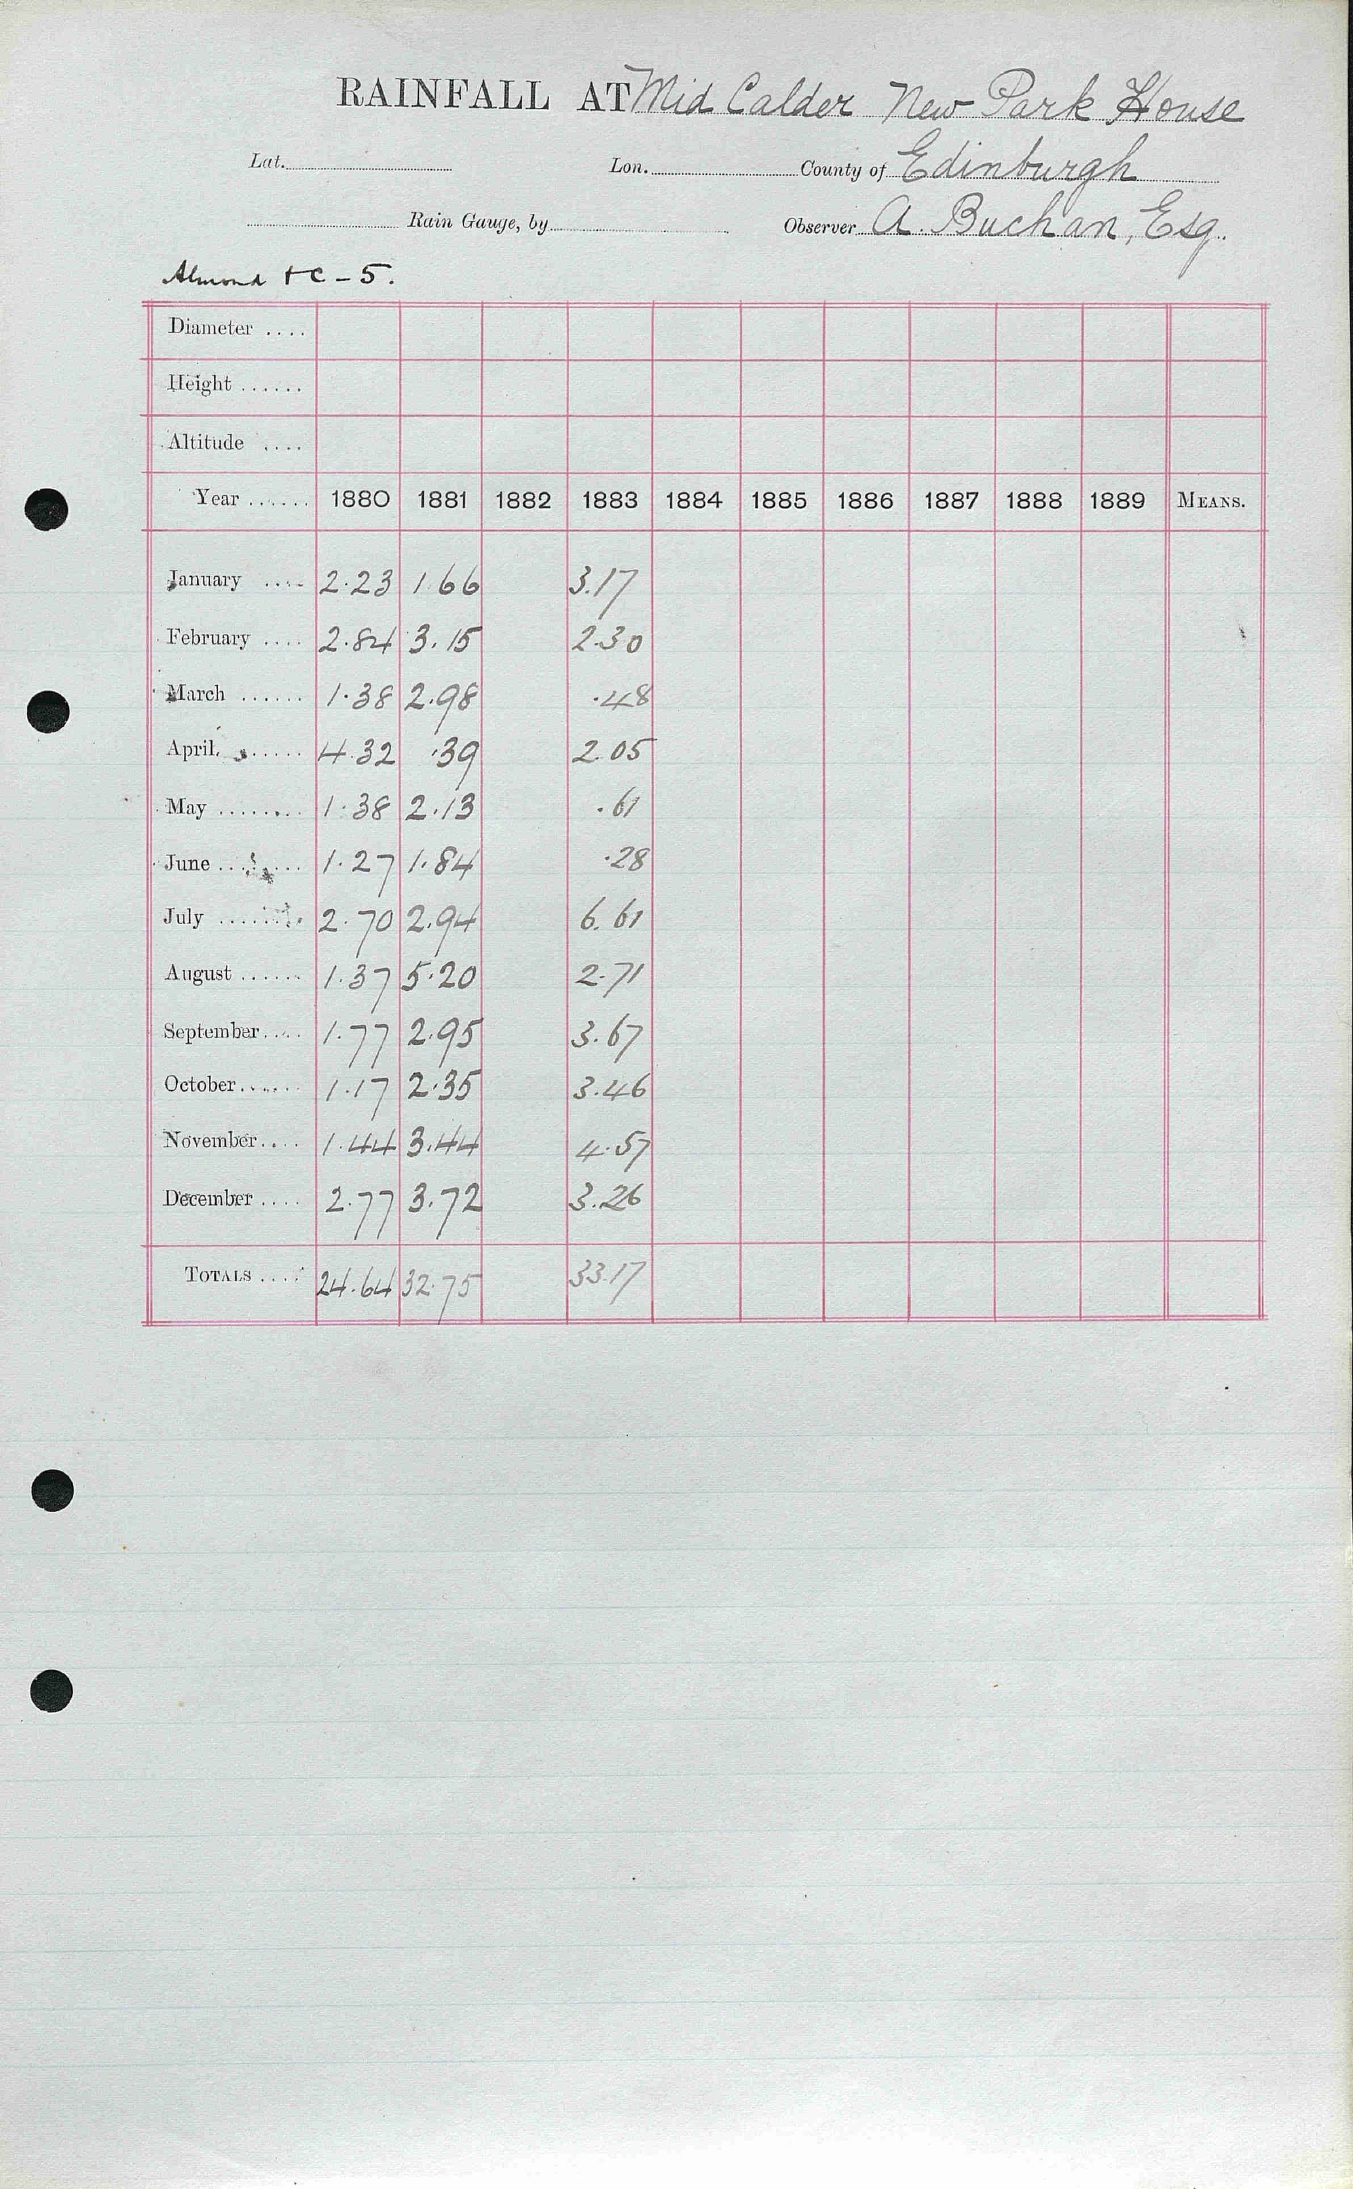 RAINFALL AT Mid Calder New Park House
Lat. Lon. County of Edinburgh
Rain Gauge, by Observer A. Buchan, Esq.
Almond + C - 5.
Diameter ....
Height ......
Altitude ....
Year ...... 1880 1881 1882 1883 1884 1885 1886 1887 1888 1889 MEANS.
January .... 2.23 1.66 3.17
February .... 2.84 3.15 2.30
March ...... 1.38 2.98 .48
April ...... 4.32 .39 2.05
May ........ 1.38 2.13 .61
June ........ 1.27 1.84 .28
July ........ 2.70 2.94 6.61
August ...... 1.37 5.20 2.71
September.... 1.77 2.95 3.67
October...... 1.17 2.35 3.46
November.... 1.44 3.44 4.57
December .... 2.77 3.72 3.26
TOTALS .... 24.64 32.75 33.17